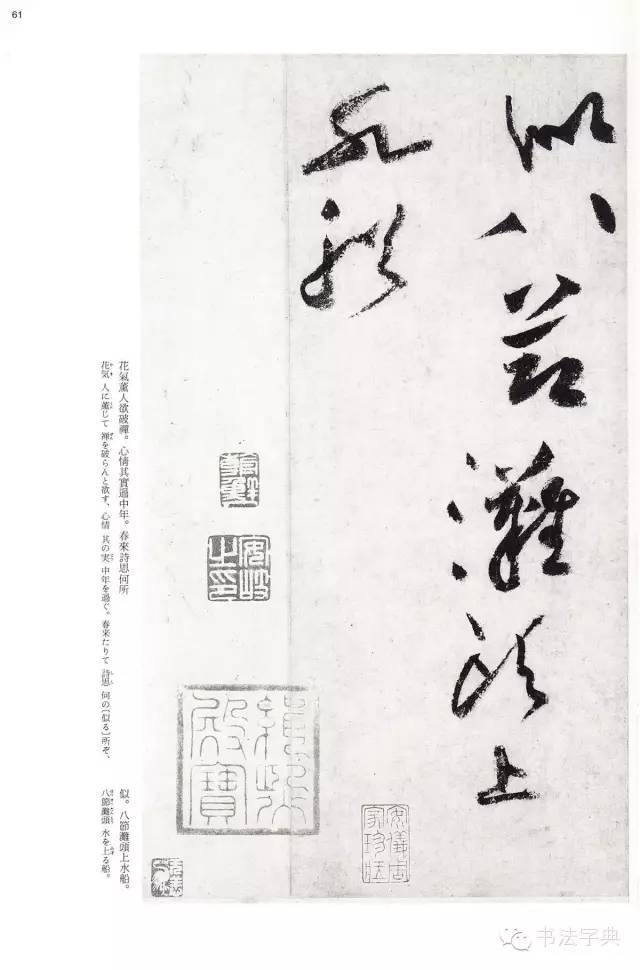 61
似八節灘頭上
水船
花氣薰人欲破禪。心情其實過中年。春來詩思何所
花氣 人に薰じて 禪を破らんと欲す、心情 其の実 中年を過ぐ。春来たりて 詩思 何の〔似る〕所ぞ、
似。八節灘頭上水船。
八節灘頭 水を上る船。
安儀周家珍藏
緝熙殿寶
安岐之印
书法字典